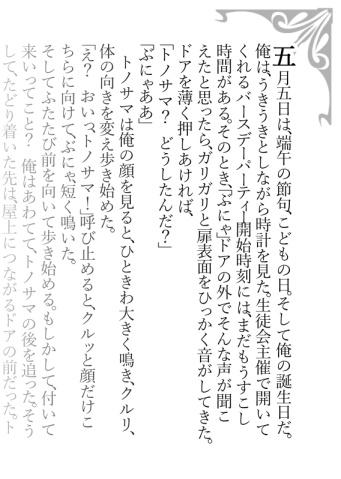 五月五日は、端午の節句、こどもの日。そして俺の誕生日だ。
俺は、うきうきとしながら時計を見た。生徒会主催で開いて
くれるバースデーパーティー開始時刻には、まだもうすこし
時間がある。そのとき、「ぶにゃ」ドアの外でそんな声が聞こ
えたと思ったら、ガリガリと扉表面をひっかく音がしてきた。
ドアを薄く押しあければ、
「トノサマ？　どうしたんだ？」
「ぶにゃああ」
　トノサマは俺の顔を見ると、ひときわ大きく鳴き、クルリ、
体の向きを変え歩き始めた。
「え？　おいっ、トノサマ！」呼び止めると、クルッと顔だけこ
ちらに向けて、ぶにゃ、短く鳴いた。
そしてふたたび前を向いて歩き始める。もしかして、付いて
来いってこと？　俺はあわてて、トノサマの後を追った。そう
して、たどり着いた先は、屋上につながるドアの前だった。ト